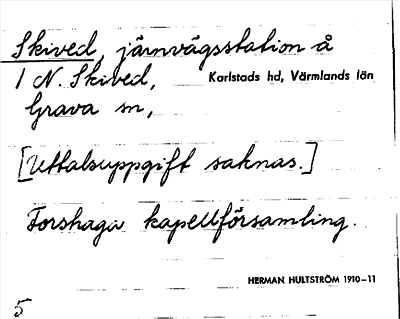 Skived, järnvägsstation å
1 N. Skived, Karlstads hd, Värmlands län
Grava sn,
[Uttalsuppgift saknas.]
Forshaga kapellförsamling.
HERMAN HULTSTRÖM 1910–11
5